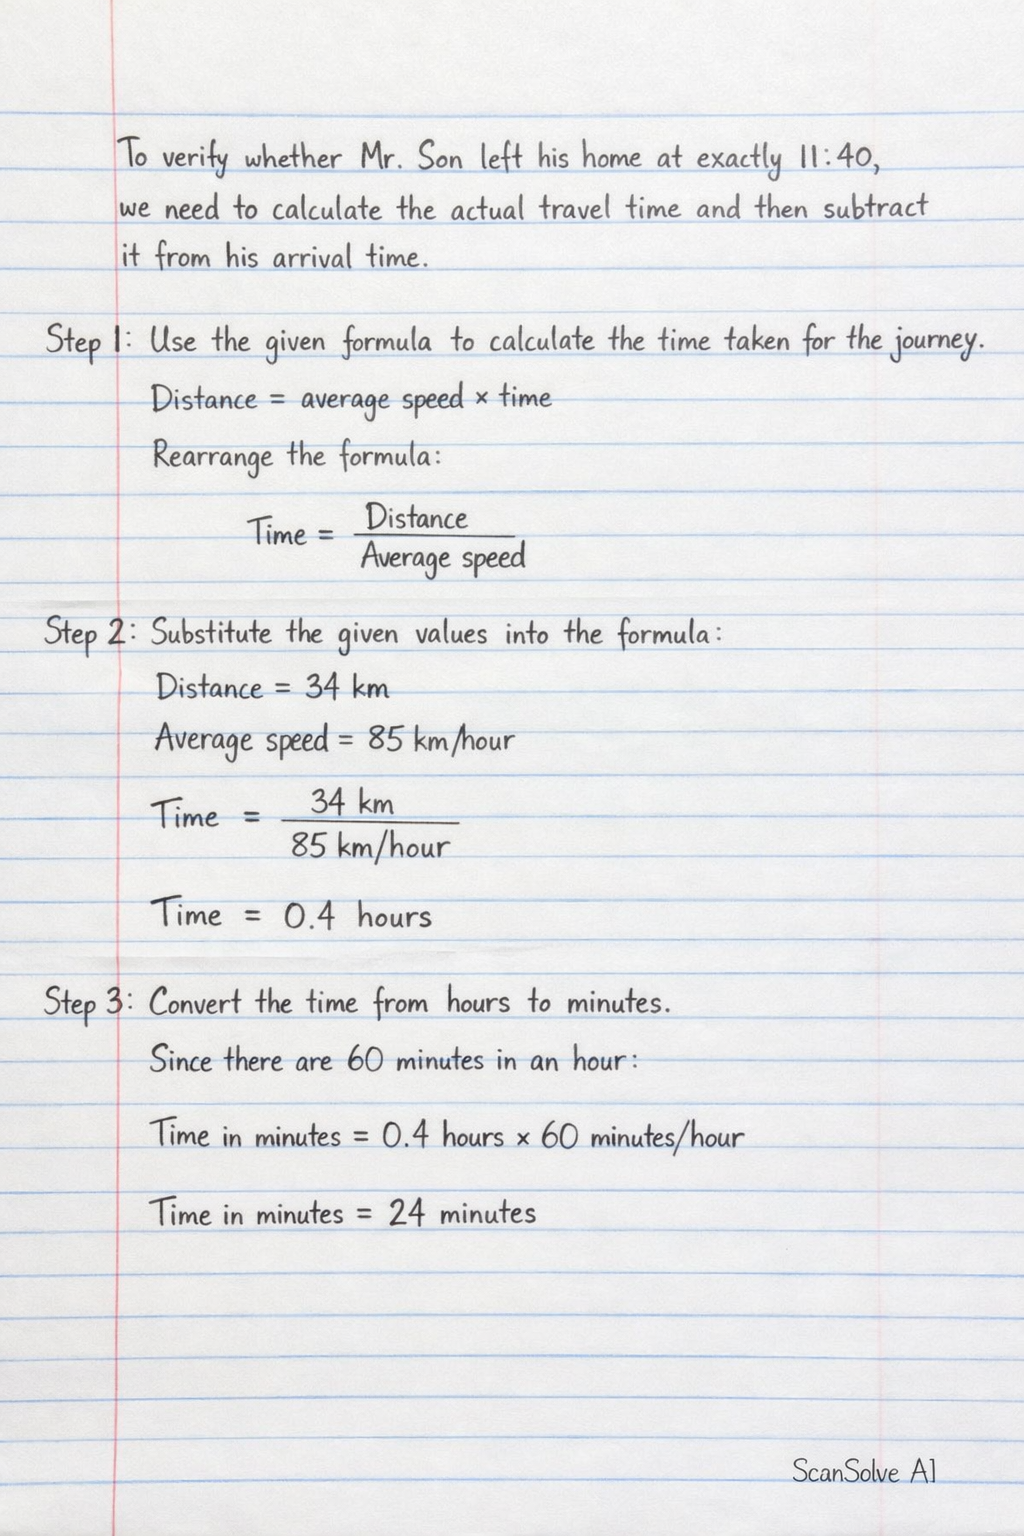 To verify whether Mr. Son left his home at exactly 11:40,
we need to calculate the actual travel time and then subtract
it from his arrival time.
Step 1: Use the given formula to calculate the time taken for the journey.
Distance = average speed × time
Rearrange the formula:
Time = Distance / Average speed
Step 2: Substitute the given values into the formula:
Distance = 34 km
Average speed = 85 km/hour
Time = 34 km / 85 km/hour
Time = 0.4 hours
Step 3: Convert the time from hours to minutes.
Since there are 60 minutes in an hour:
Time in minutes = 0.4 hours × 60 minutes/hour
Time in minutes = 24 minutes
ScanSolve AI